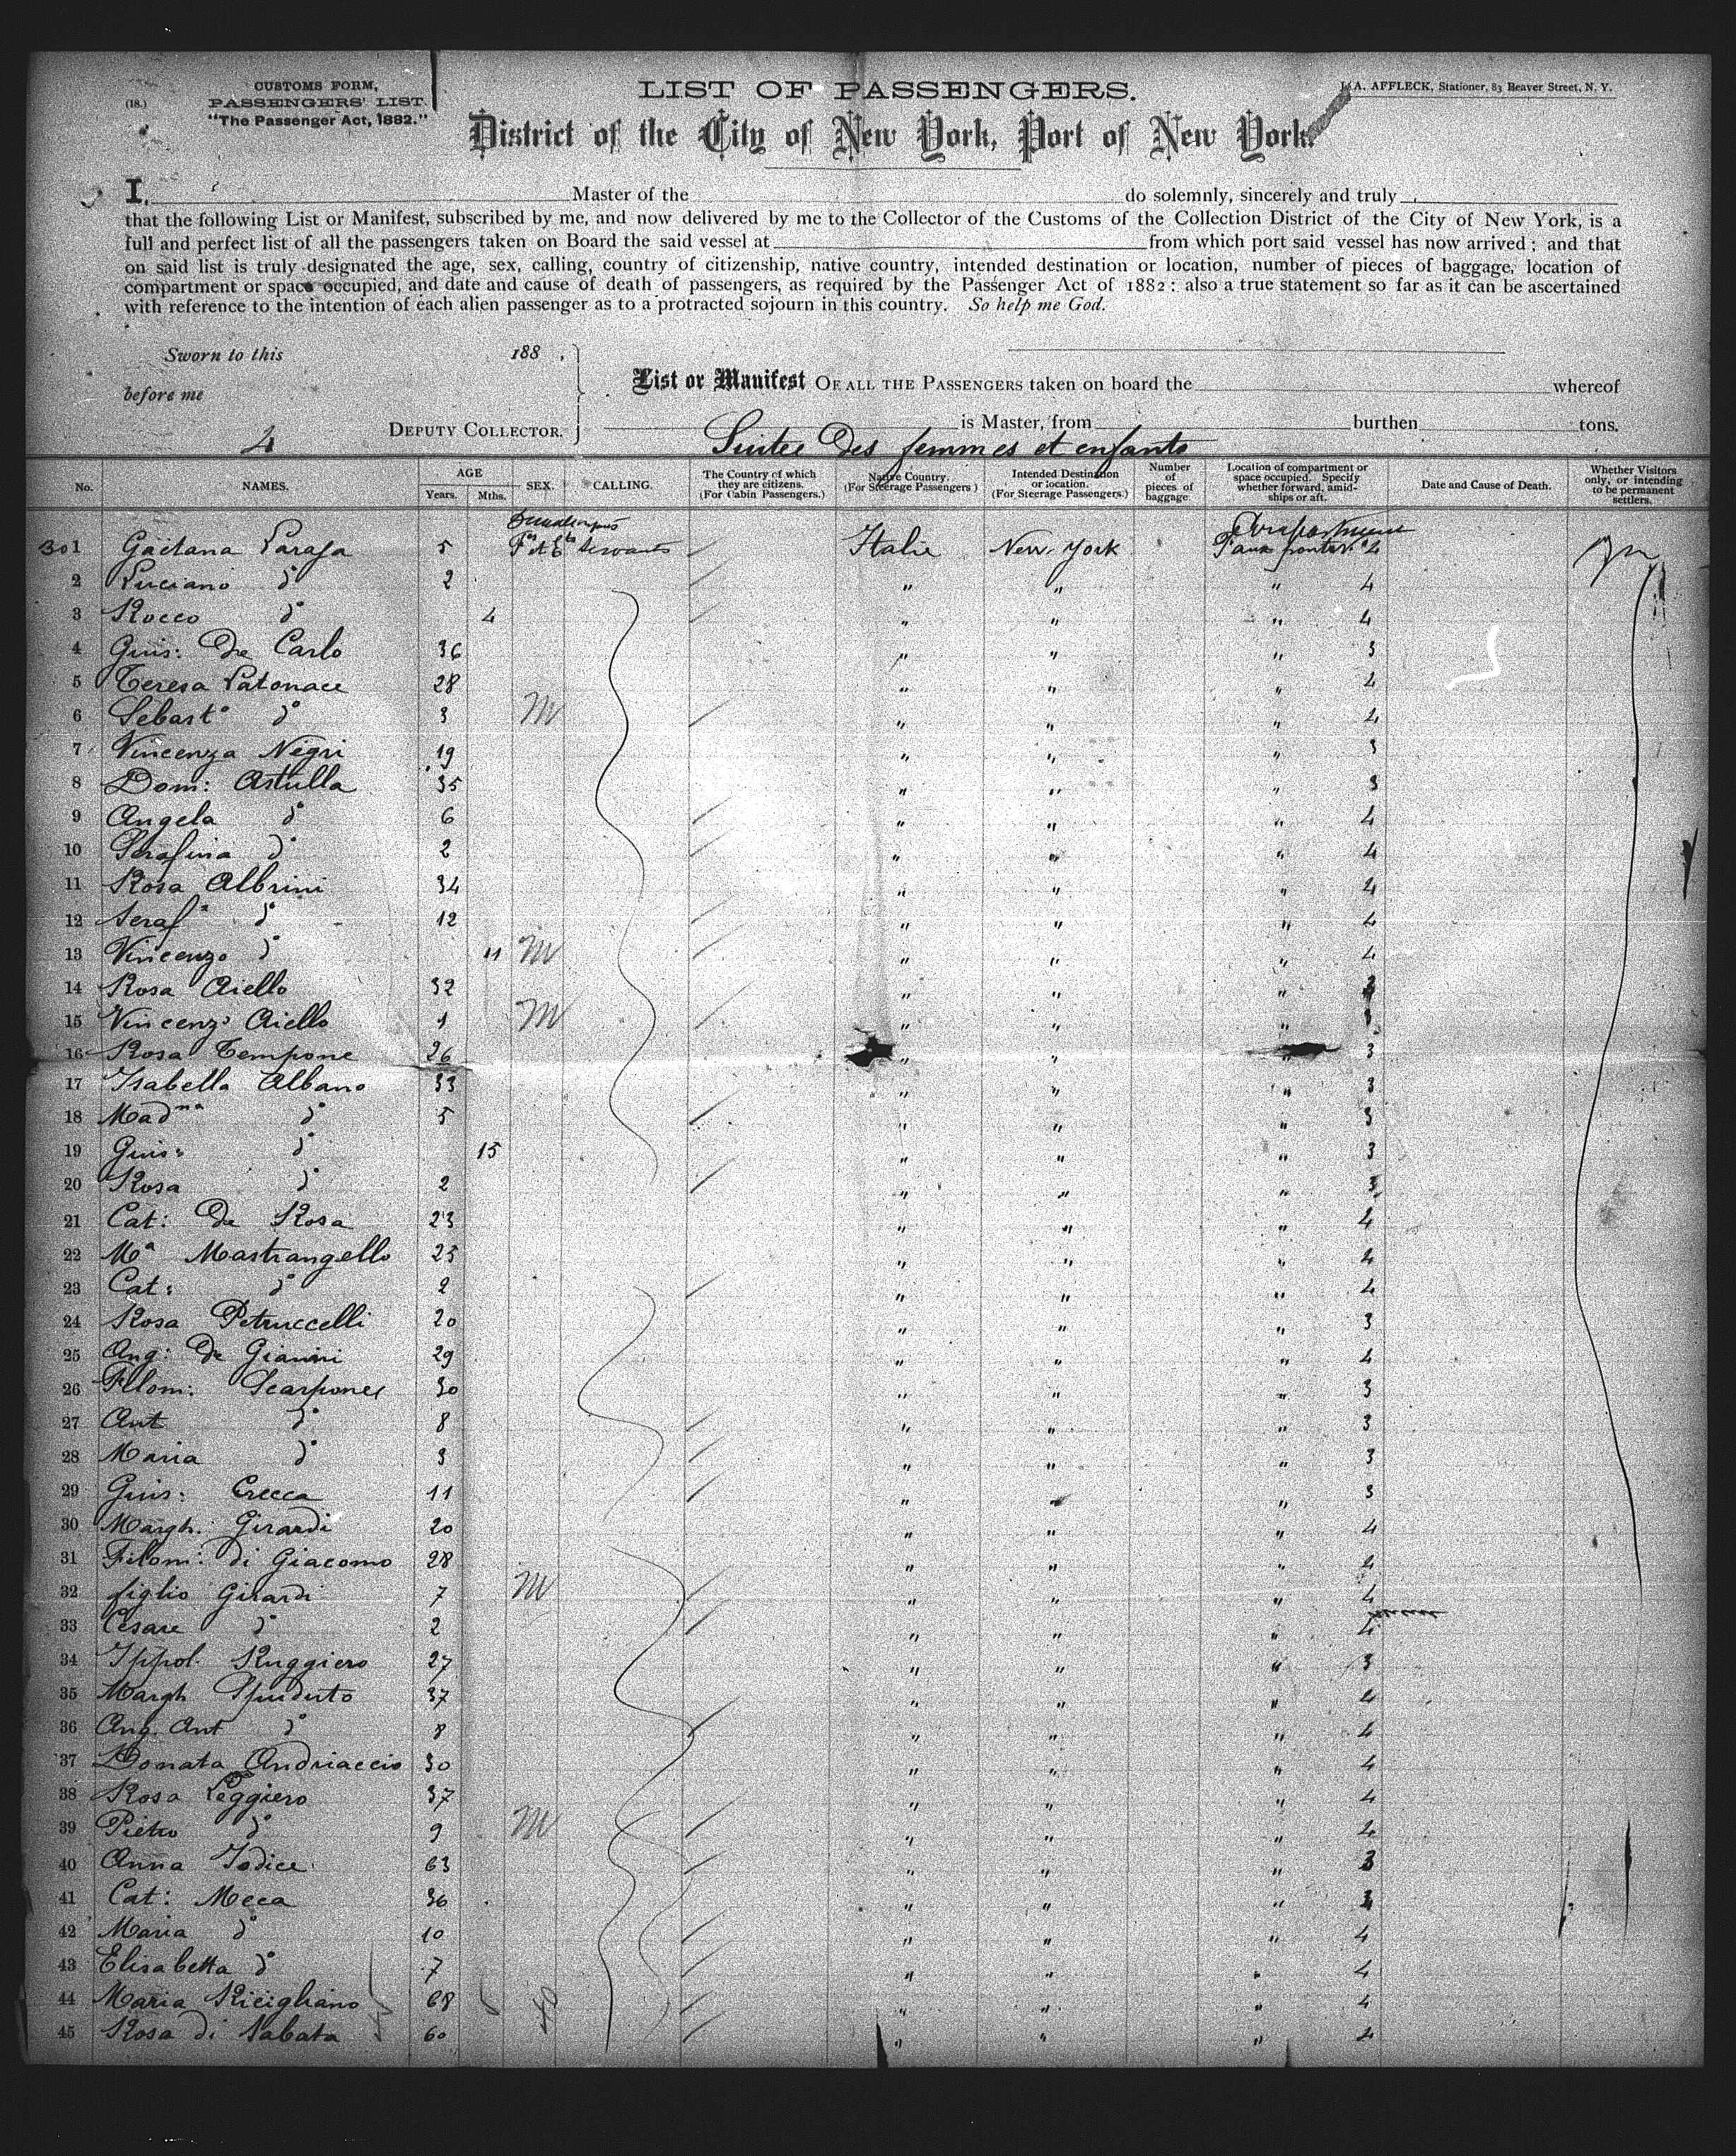 (18.)
CUSTOMS FORM,
PASSENGERS' LIST.
"The Passenger Act, 1882."
LIST OF PASSENGERS.
A. AFFLECK, Stationer, 83 Beaver Street, N. Y.
District of the City of New York, Port of New York.
I, Master of the do solemnly, sincerely and truly
that the following List or Manifest, subscribed by me, and now delivered by me to the Collector of the Customs of the Collection District of the City of New York, is a
full and perfect list of all the passengers taken on Board the said vessel at from which port said vessel has now arrived; and that
on said list is truly designated the age, sex, calling, country of citizenship, native country, intended destination or location, number of pieces of baggage, location of
compartment or space occupied, and date and cause of death of passengers, as required by the Passenger Act of 1882: also a true statement so far as it can be ascertained
with reference to the intention of each alien passenger as to a protracted sojourn in this country. So help me God.
Sworn to this 188 .
before me
List or Manifest OF ALL THE PASSENGERS taken on board the whereof
DEPUTY COLLECTOR. is Master, from burthen tons.
4 Suite des femmes et enfants
No. NAMES. AGE Years. Mths. SEX. CALLING. The Country of which they are citizens. (For Cabin Passengers.) Native Country. (For Steerage Passengers.) Intended Destination or location. (For Steerage Passengers.) Number of pieces of baggage. Location of compartment or space occupied. Specify whether forward, amidships or aft. Date and Cause of Death. Whether Visitors only, or intending to be permanent settlers.
301 Gaetana 5 Italie New-York 4
2 Luciano do 2 " " " 4
3 Rocco do 4 " " " 4
4 Guis: De Carlo 36 " " " 3
5 Teresa Latonace 28 " " " 4
6 Sebasto do 3 M " " " 4
7 Vincenza Negri 19 " " " 3
8 Dom: Astulla 35 " " " 3
9 Angela do 6 " " " 4
10 Serafina do 2 " " " 4
11 Rosa Albrini 34 " " " 4
12 Serafa do 12 " " " 4
13 Vincenzo do 11 M " " " 4
14 Rosa Aiello 32 " " "
15 Vincenzo Aiello 1 M " " "
16 Rosa Tempone 26 " " " 3
17 Isabella Albano 33 " " " 3
18 Madna do 5 " " " 3
19 Guis: do 15 " " " 3
20 Rosa do 2 " " " 3
21 Cat: De Rosa 23 " " " 4
22 Ma Mastrangello 25 " " " 4
23 Cat: do 2 " " " 4
24 Rosa Petruccelli 20 " " " 3
25 Ang: De Gianni 29 " " " 4
26 Filom: Scarpone 30 " " " 3
27 Ant do 8 " " " 3
28 Maria do 3 " " " 3
29 Guis: Crecca 11 " " " 3
30 Margh. Girardi 20 " " " 4
31 Filom: di Giacomo 28 " " " 4
32 figlio Girardi 7 M " " " 4
33 Cesare do 2 " " " 4
34 Ippol. Ruggiero 27 " " " 3
35 Margh Spuduto 37 " " " 4
36 Ang. Ant do 8 " " " 4
37 Donata Andriaccio 30 " " " 4
38 Rosa Leggiero 37 " " " 4
39 Pietro do 9 M " " " 4
40 Anna Iodice 63 " " " 3
41 Cat: Mecca 36 " " "
42 Maria do 10 " " " 4
43 Elisabetta do 7 " " " 4
44 Maria Ricigliano 68 " " " 4
45 Rosa di Sabata 60 " " " 4